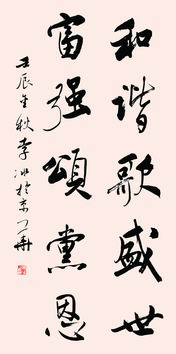 和谐歌盛世
富强颂党恩
壬辰金秋李冰于京